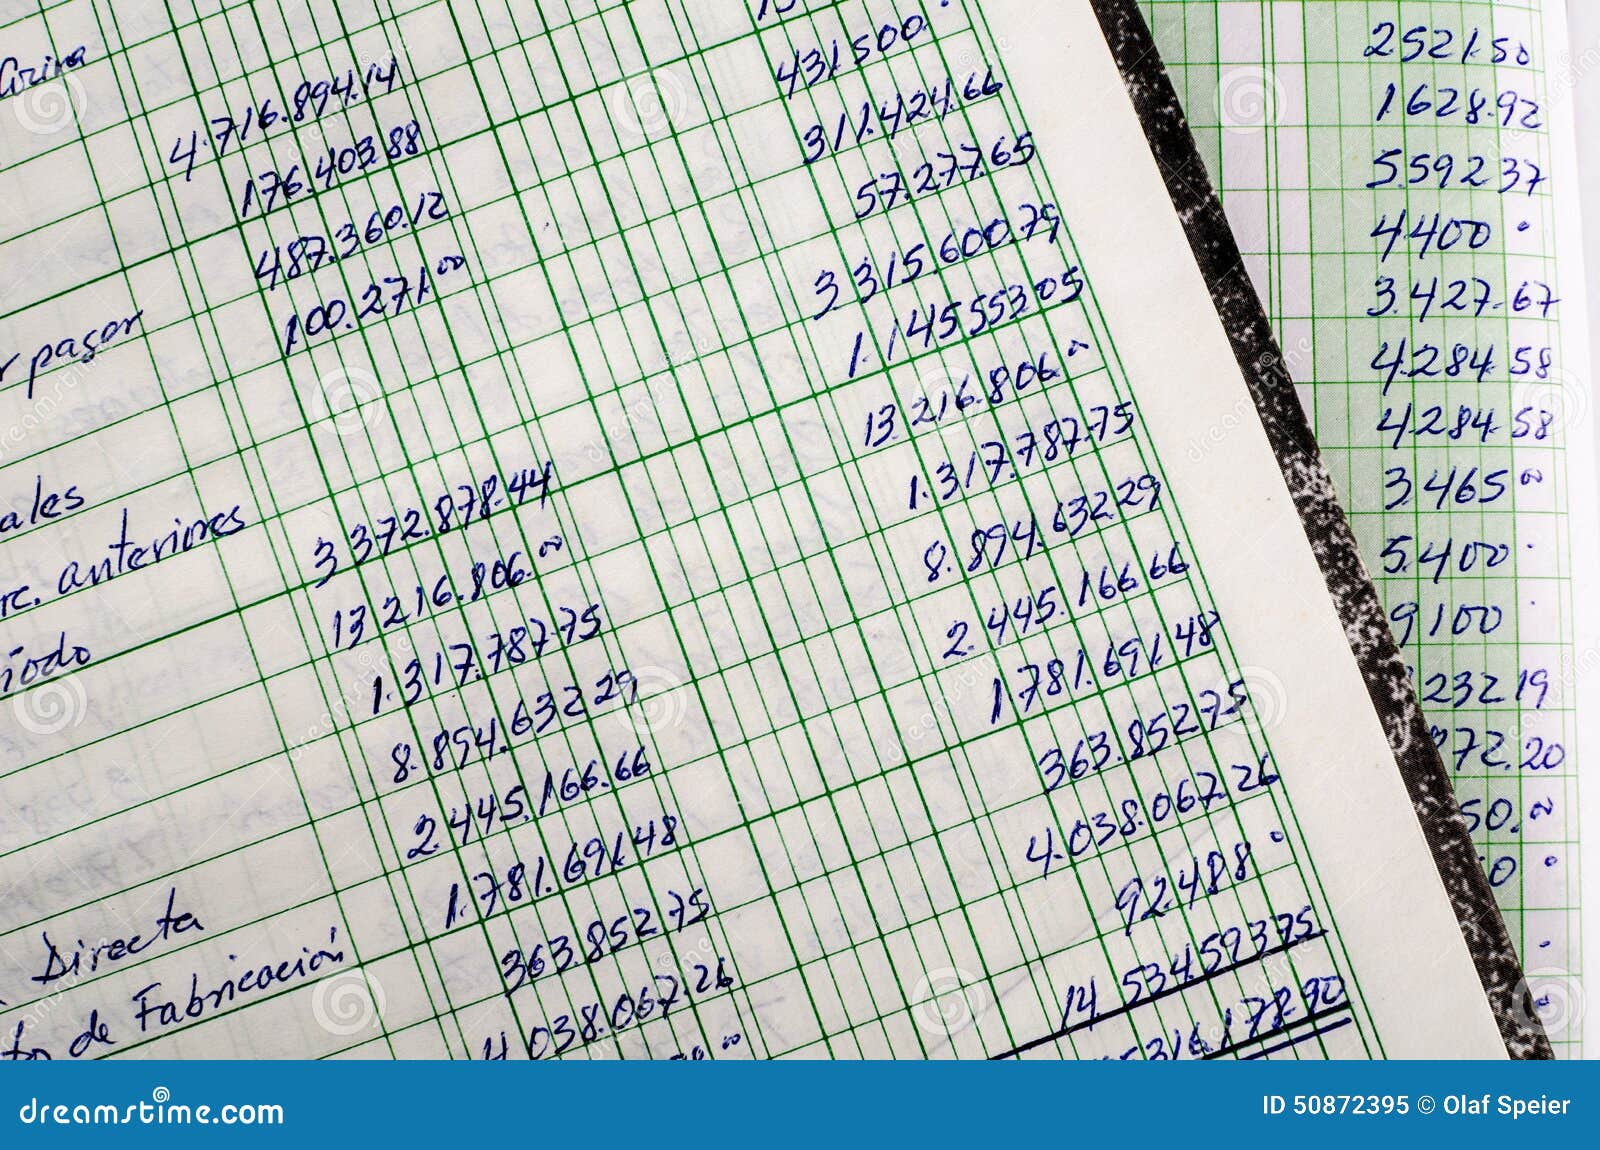 Corina
4.716.894.14
176.403.88
487.360.12
r pagar 100.271.00
ales
anteriores 3372.878.44
iodo 13216.806.00
1.317.787.75
8.894.632.29
2445.166.66
Directa 1.781.691.48
de Fabricación 363.852.75
4038.067.26
431.500.
311.424.66
57.277.65
3315.600.79
1.145553.05
13.216.806.00
1.317.787.75
8.894.632.29
2.445.166.66
1781.691.48
363.852.75
4.038.067.26
92.488
14.534.59375
5316.178.90
2521.50
1.628.92
5.592 37
4400
3.427.67
4.284.58
4284.58
3465 00
5.400
9100
232 19
72.20
50.00
0
dreamstime.com
ID 50872395 © Olaf Speier